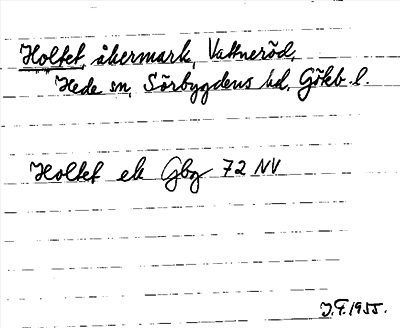 Holtet, åkermark, Vattneröd,
Hede sn, Sörbygdens hd, Götkb. l.
Holtet ek Gbg 72 NV
J.F. 1955.